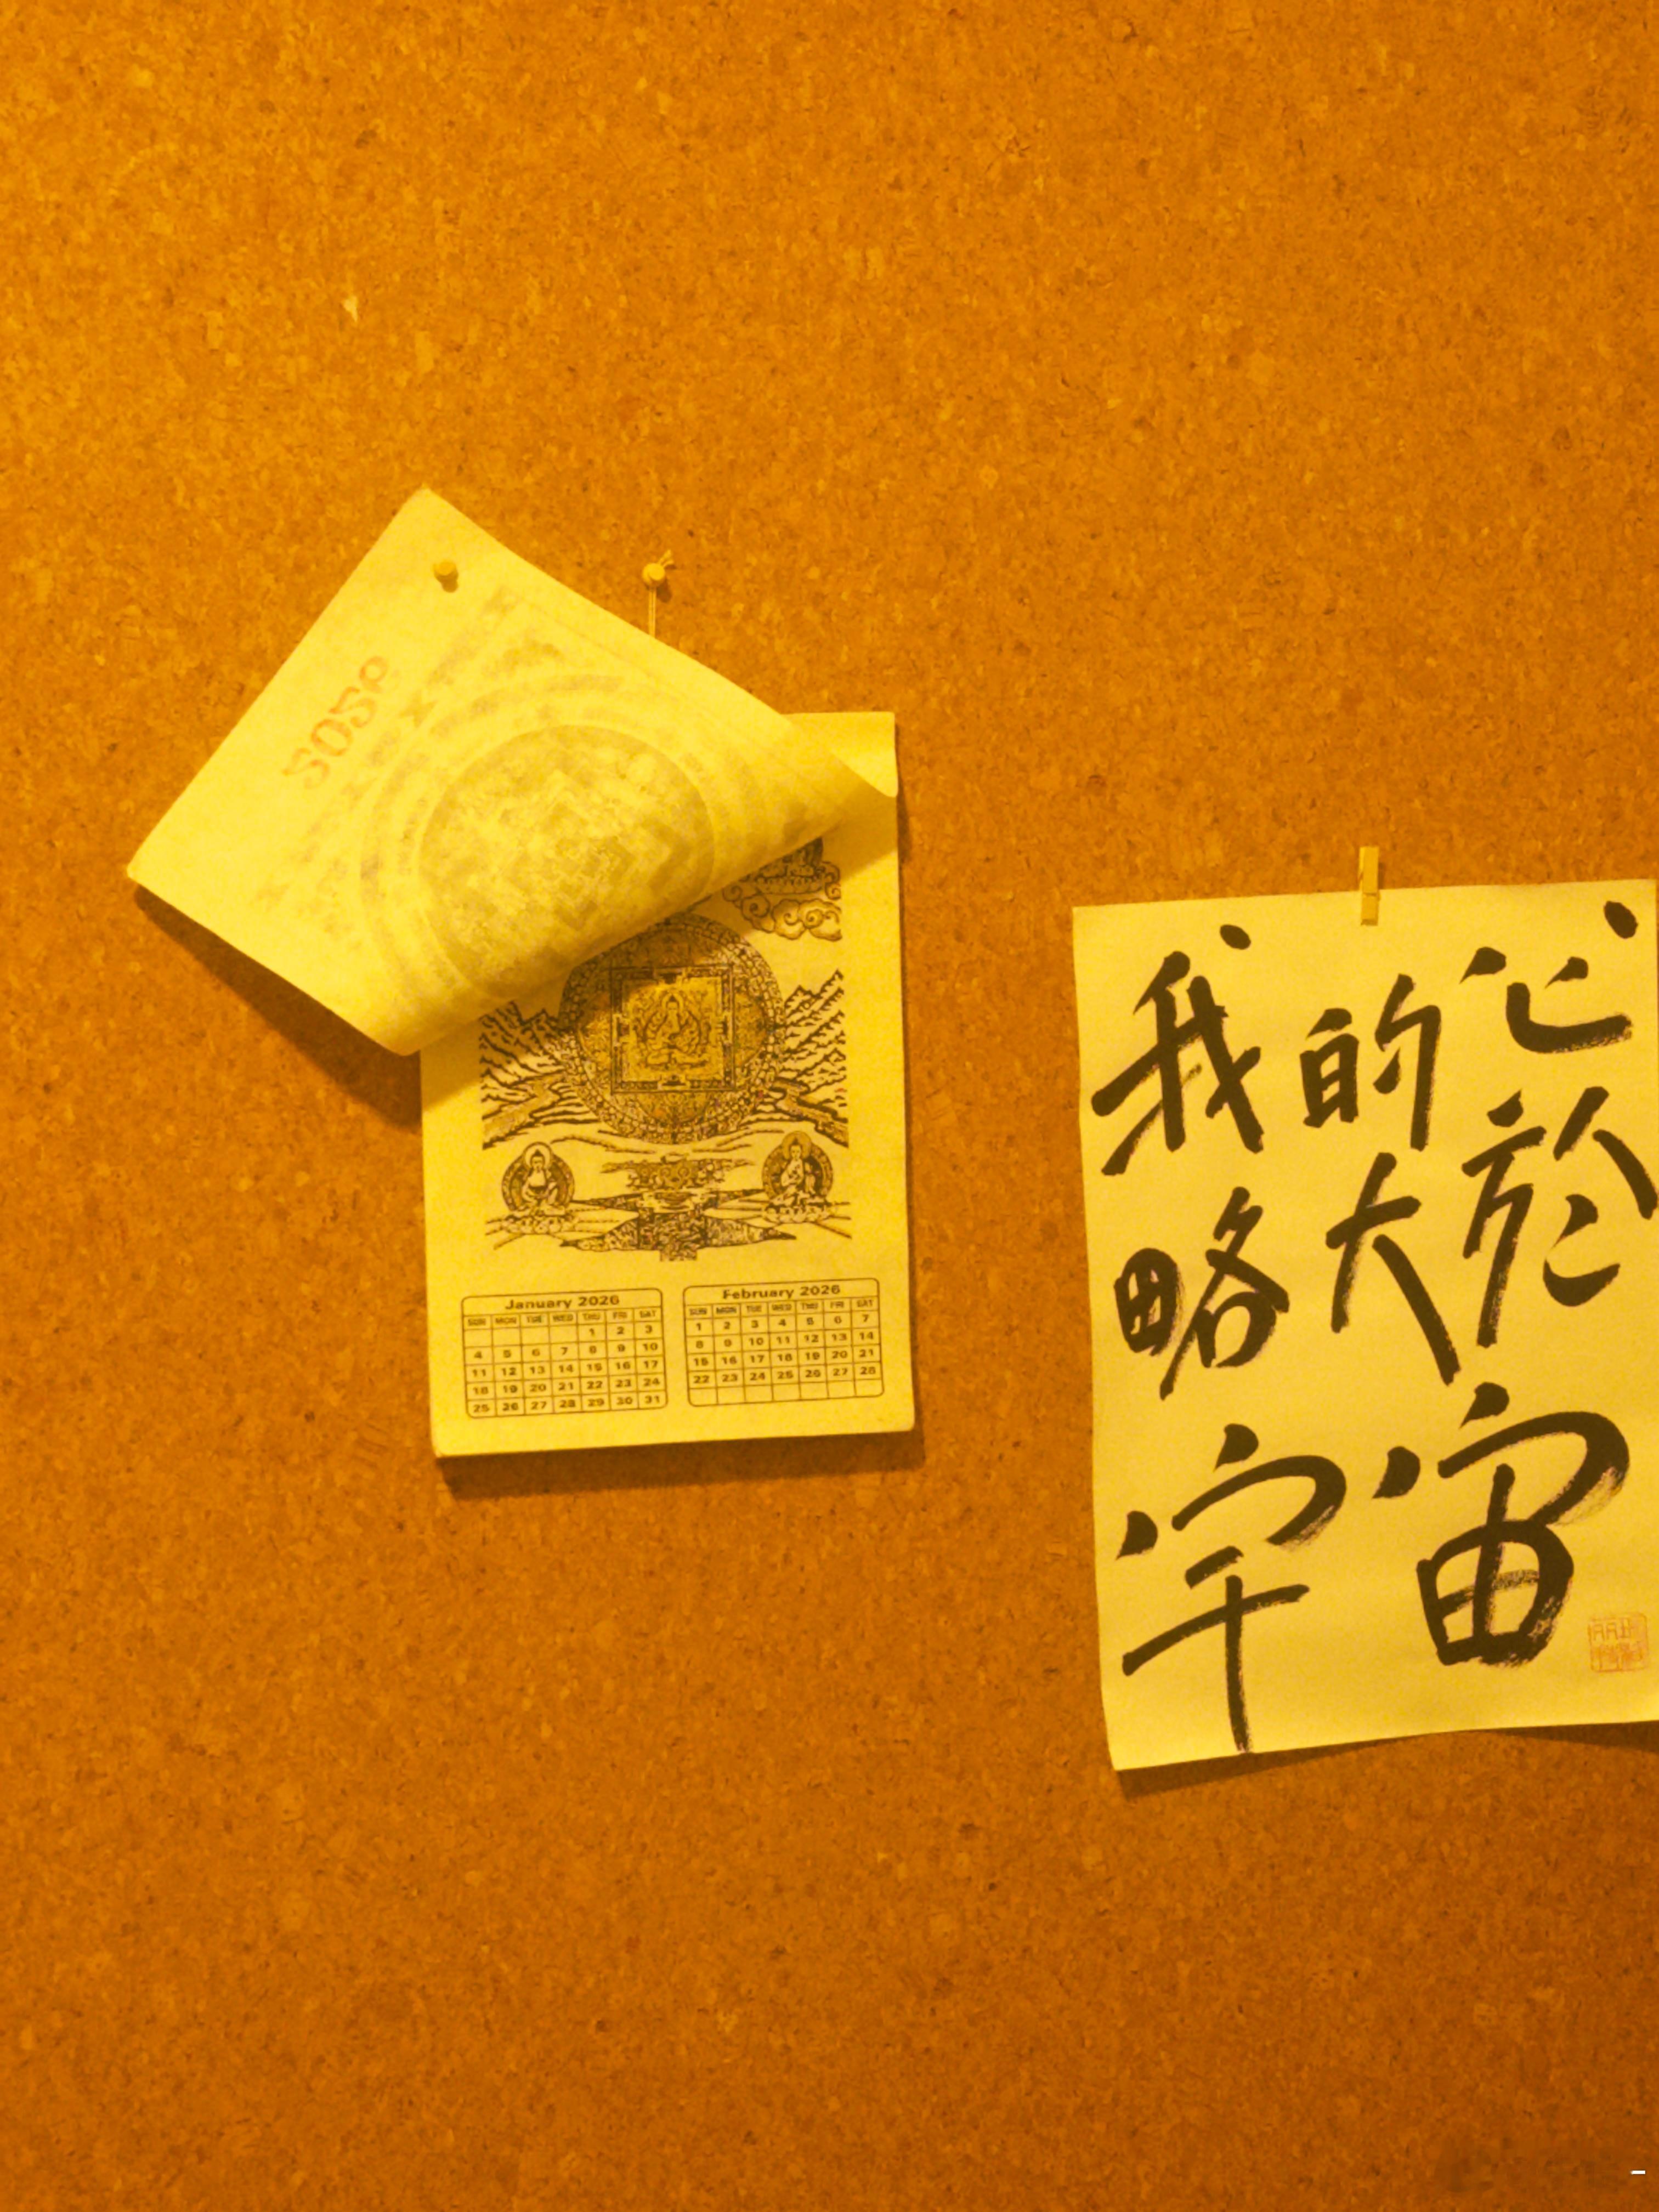 January 2026
SUN MON TUE WED THU FRI SAT
1 2 3
4 5 6 7 8 9 10
11 12 13 14 15 16 17
18 19 20 21 22 23 24
25 26 27 28 29 30 31
February 2026
SUN MON TUE WED THU FRI SAT
1 2 3 4 5 6 7
8 9 10 11 12 13 14
15 16 17 18 19 20 21
22 23 24 25 26 27 28
我的心
略大於
宇宙